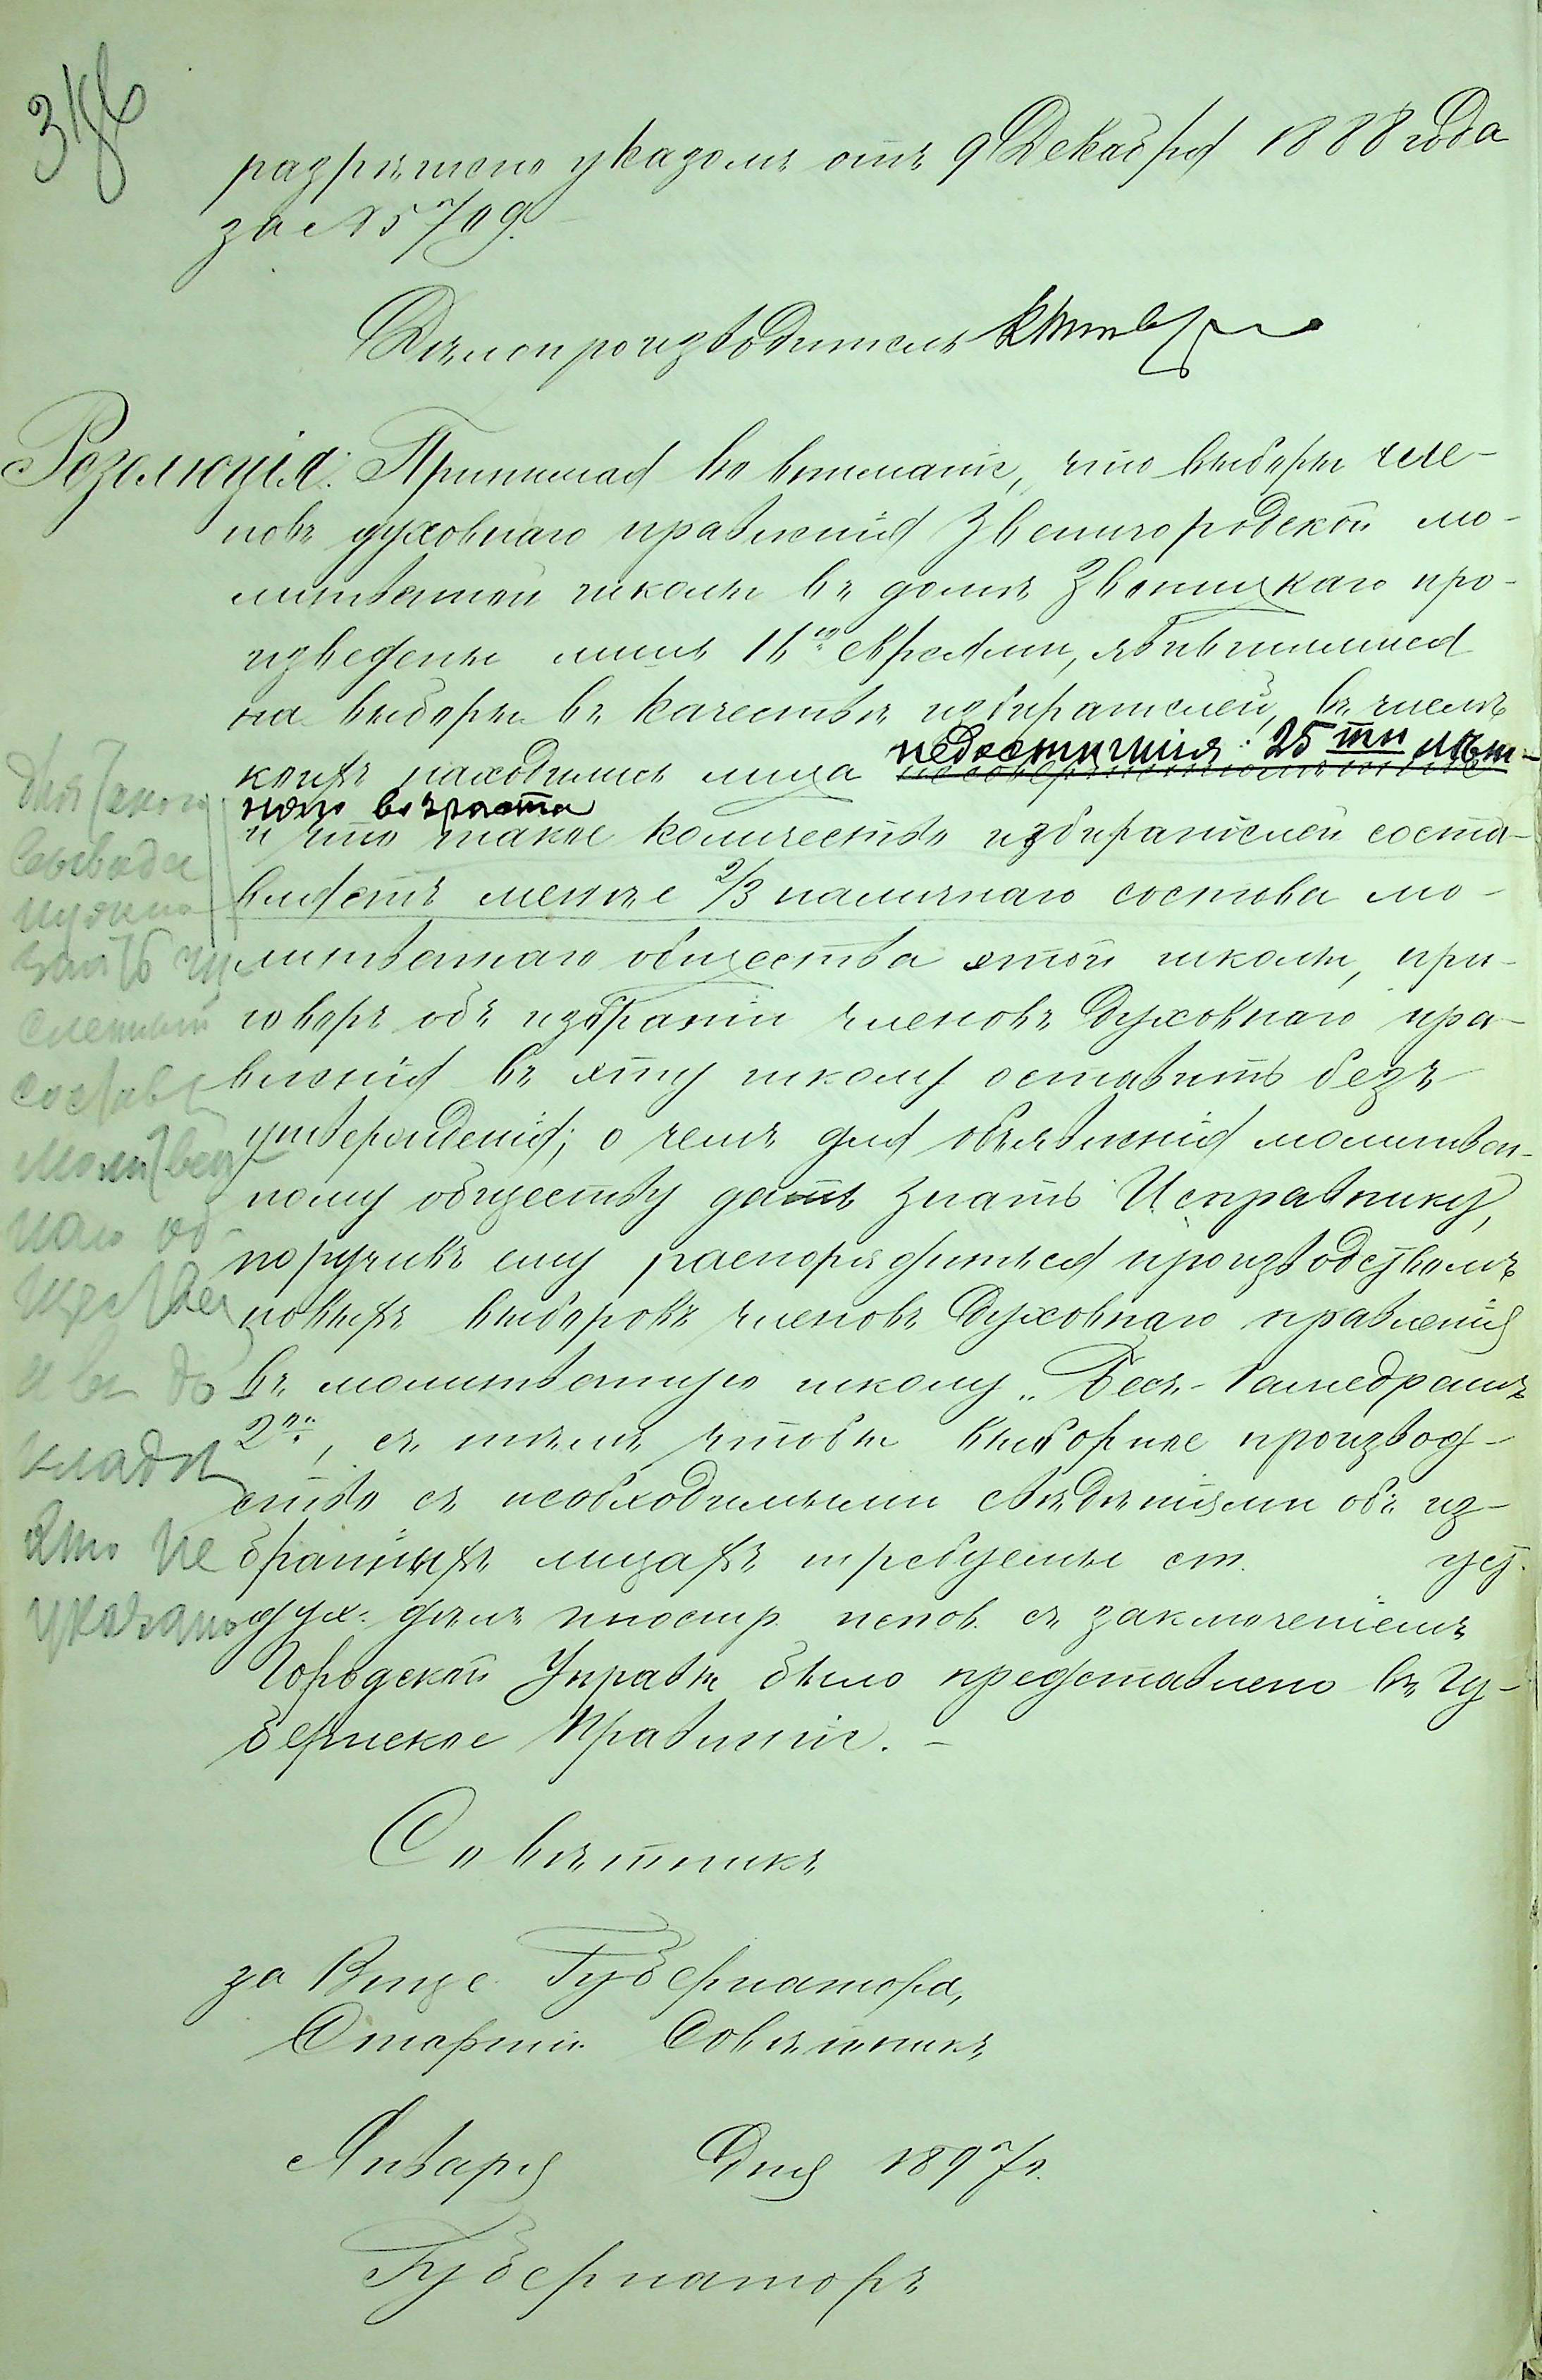 разрѣшено указомъ отъ 9 Декабря 1888 года
за № 5709.
Дѣлопроизводитель
Резолюція: Принимая во вниманіе, что выборы чле-
новъ духовнаго правленія Звенигородской мо-
литвенной школы въ домѣ Звоницкаго про-
изведены лишь 16ю евреями, явившимися
на выборы въ качествѣ избирателей, въ числѣ
коихъ находились лица недостигшія 25 ти лѣт-
няго возраста
и что такое количество избирателей соста-
вляетъ менѣе 2/3 наличнаго состава мо-
литвеннаго общества этой школы, при-
говоръ объ избраніи членовъ духовнаго пра-
вленія въ эту школу оставить безъ
утвержденія; о чемъ для объявленія молитвен-
ному обществу дать знать Исправнику,
поручивъ ему распорядиться производствомъ
новыхъ выборовъ членовъ духовнаго правленія
въ молитвенную школу „Бесъ-Гамедрашъ
2й", съ тѣмъ чтобы выборное производ-
ство съ необходимыми свѣдѣніями объ из-
бранныхъ лицахъ требуемы ст. уст.
дух. дѣлъ иностр. испов. съ заключеніемъ
Городской Управы было представлено въ Гу-
бернское Правленіе.
Совѣтникъ
за Вице Губернатора,
Старшій Совѣтникъ
Января Дня 1897 г.
Губернаторъ
Для такого
вывода
нужно
знать чи
сленный
составъ
Молитвен
наго об-
щества
а въ до
кладѣ
это не
указано